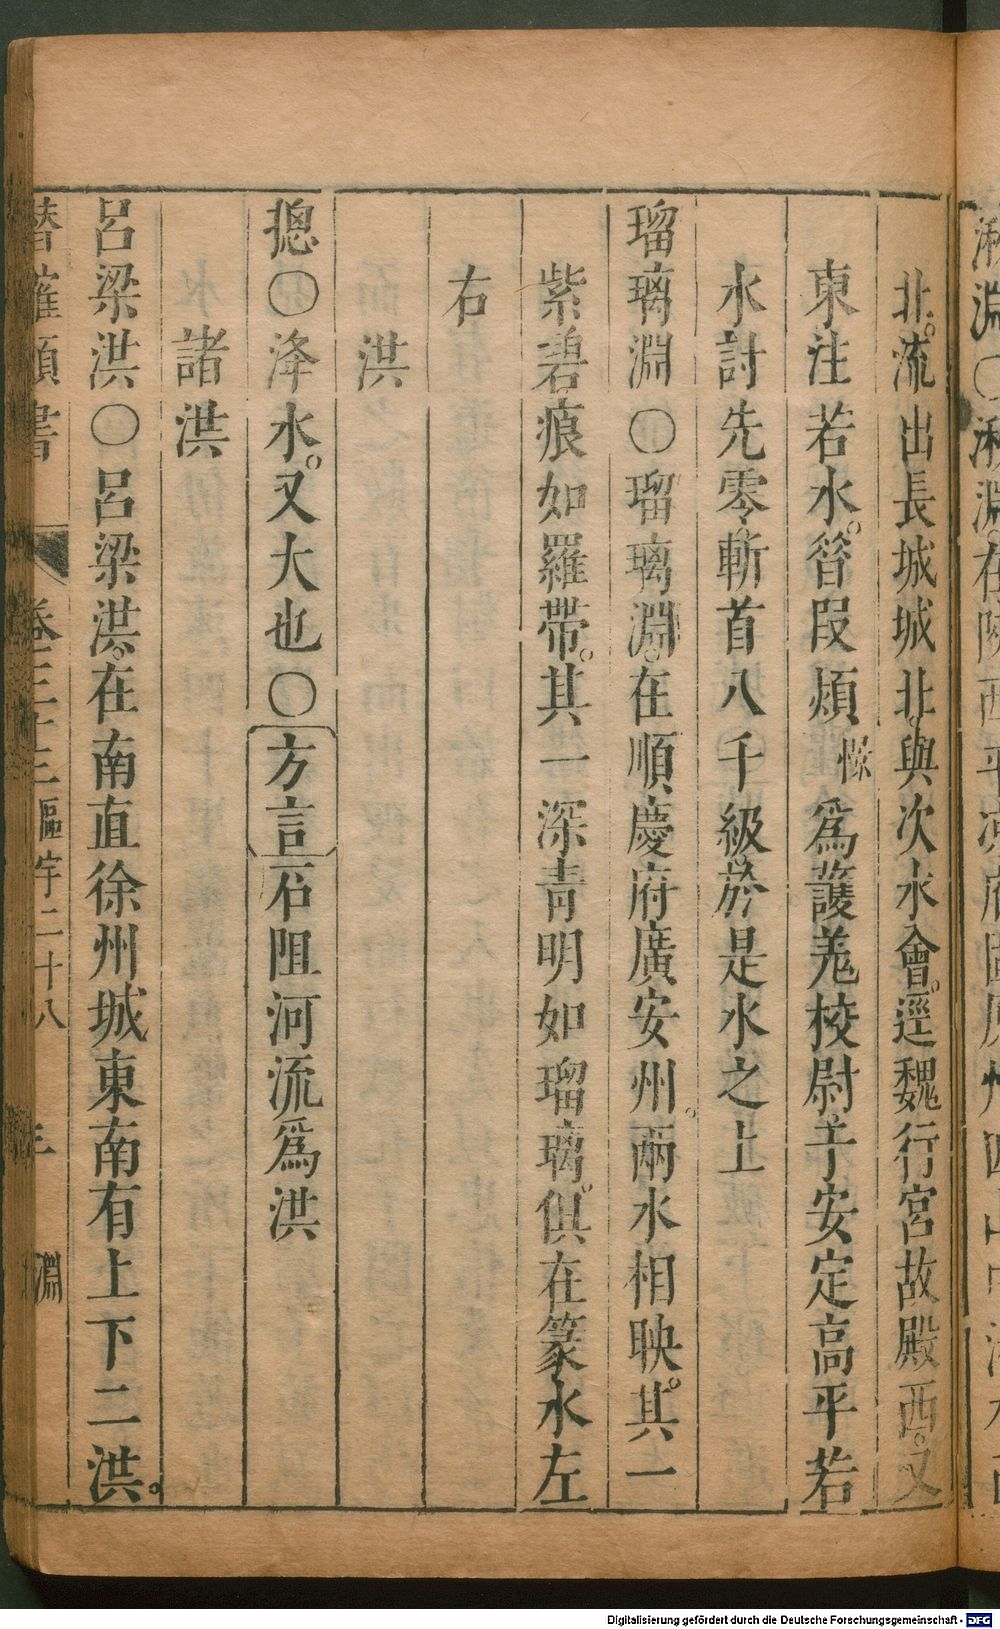 北。流出長城城北。與次水會。逕魏行宮故殿西。又
東注若水。昝段熲㦨爲護羌校尉。于安定高平若
水討先零。斬首八千級。於是水之上
瑠璃淵〇瑠璃淵。在順慶府廣安州。兩水相映。其一
紫碧痕如羅帶。其一深青明如瑠璃。俱在篆水左
右
洪
摠〇洚水。又大也〇方言石阻河流爲洪
諸洪
呂梁洪〇呂梁洪。在南直徐州城東南有上下二洪。
潛確類書 卷三十三 區宇二十八 淵
Digitalisierung gefördert durch die Deutsche Forschungsgemeinschaft - DFG